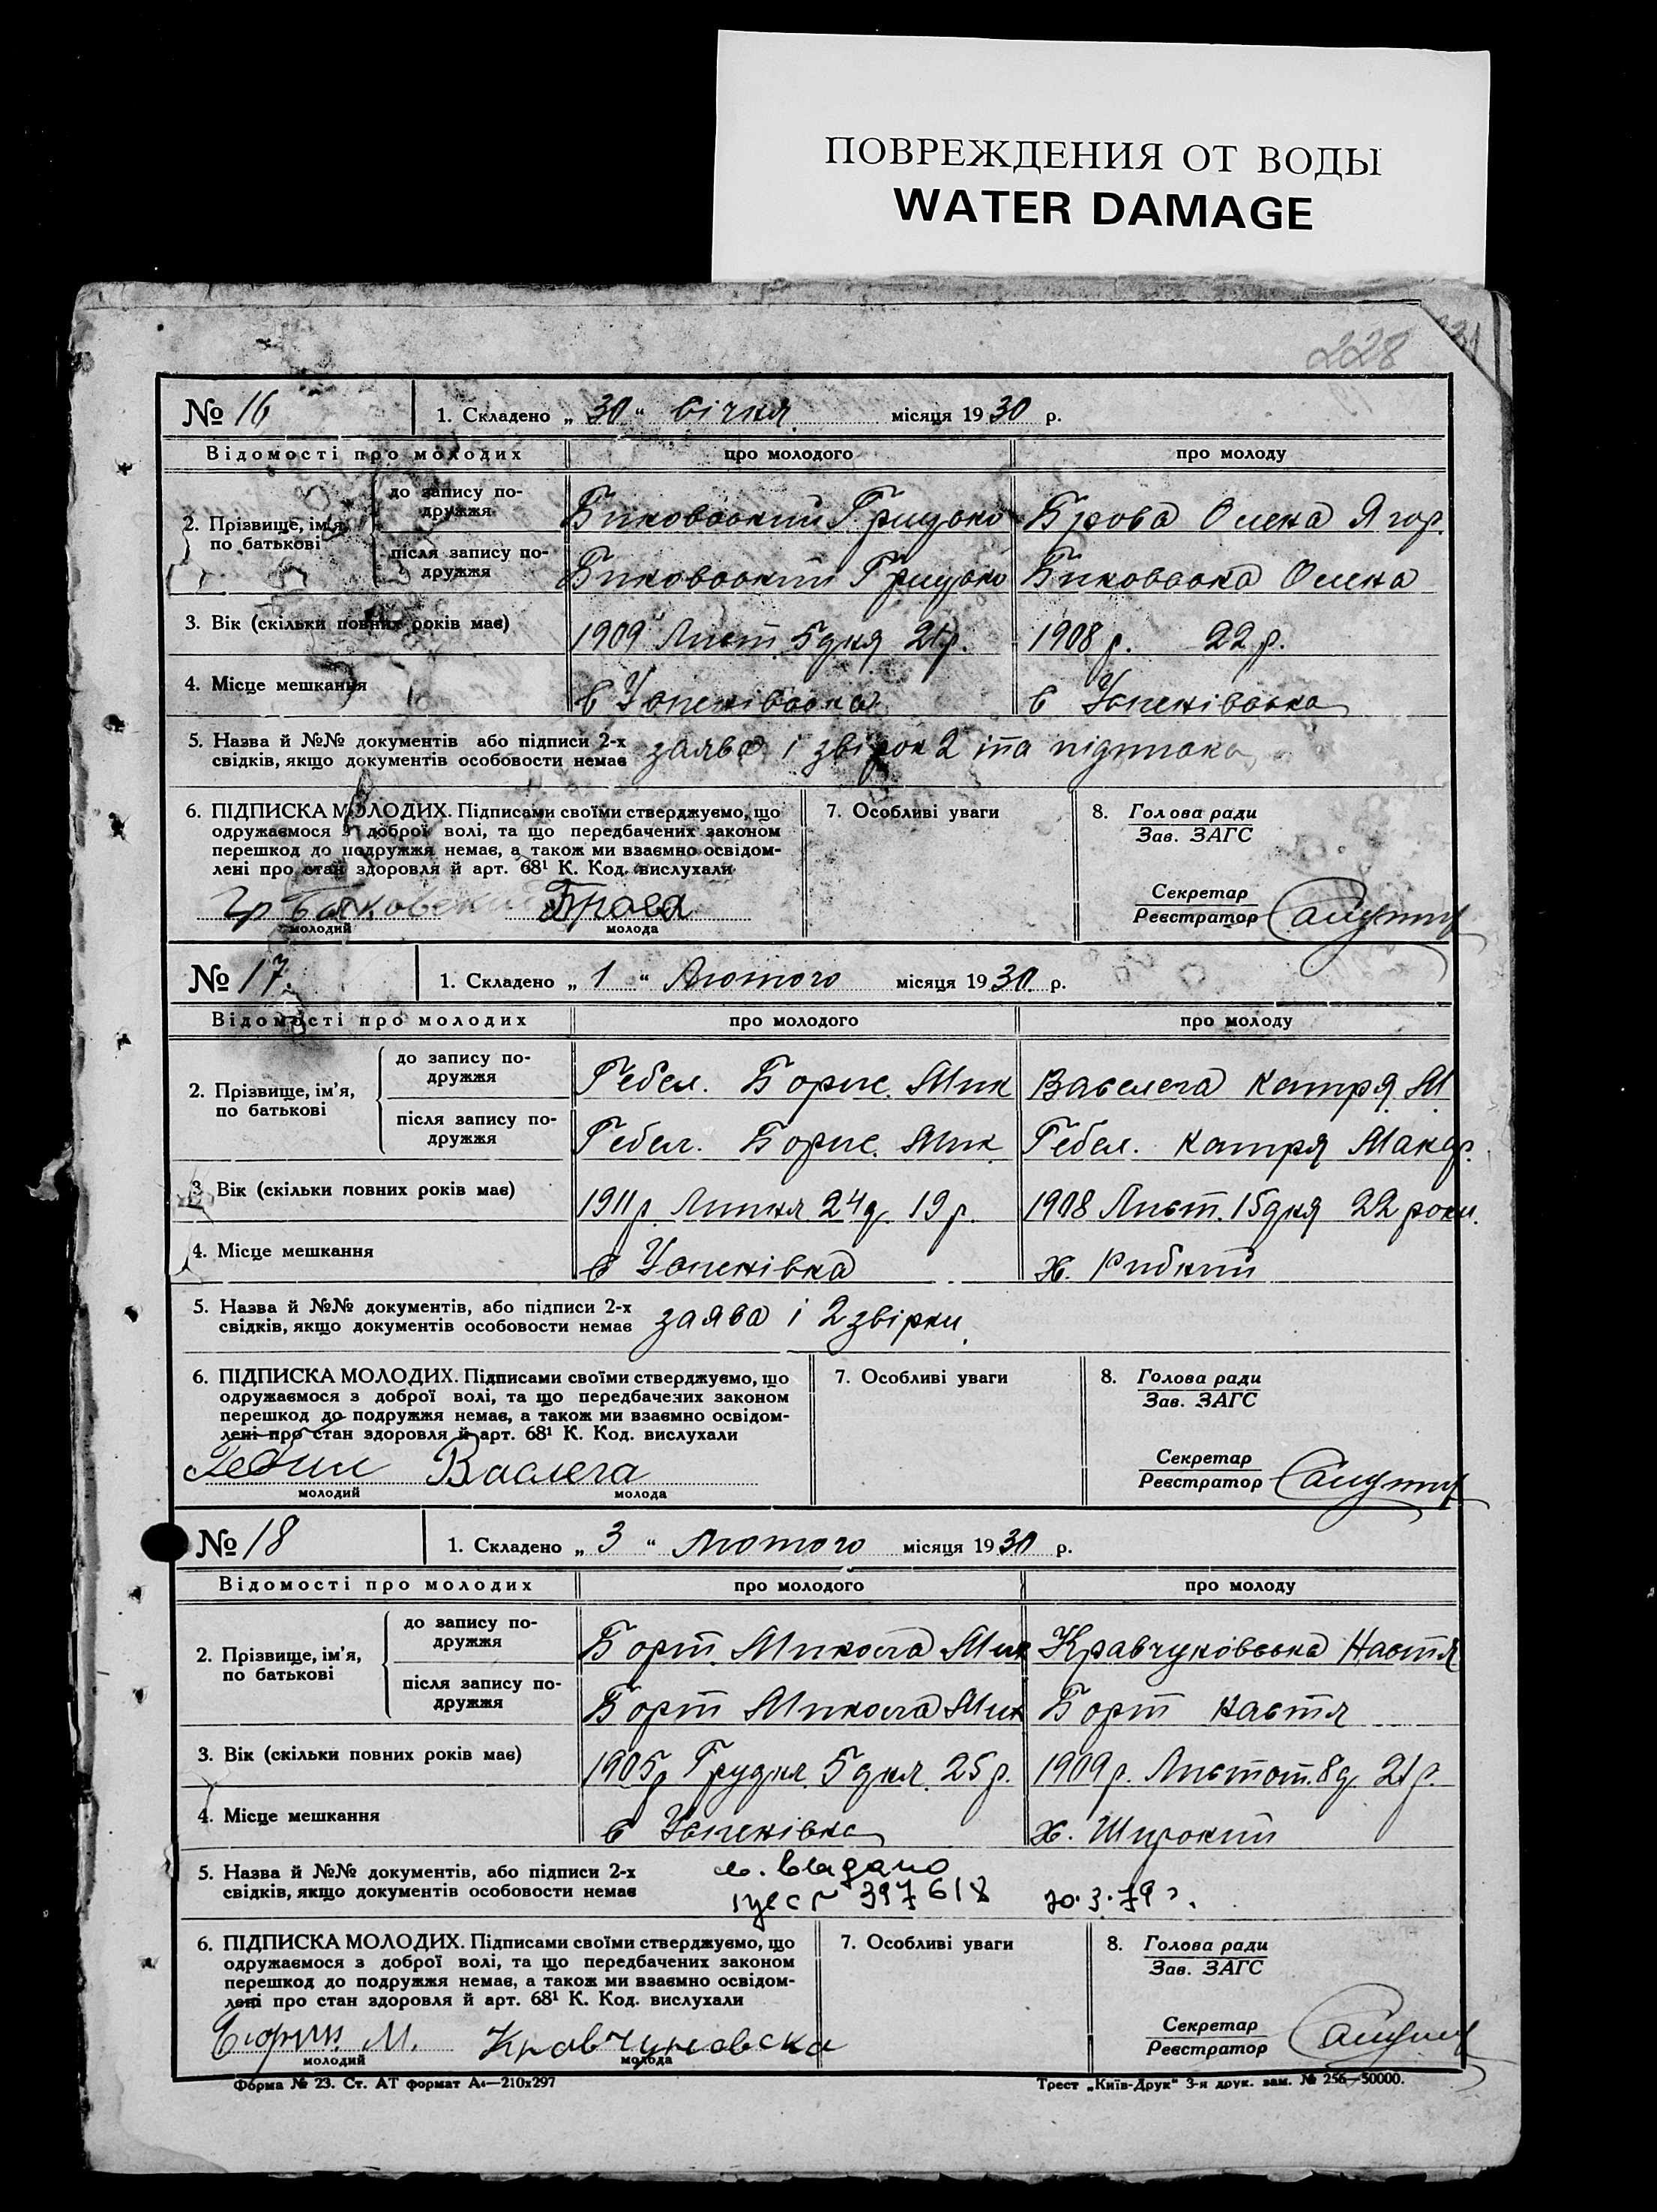 ПОВРЕЖДЕНИЯ ОТ ВОДЫ
WATER DAMAGE
228
№ 16
1. Складено „ 30 “ Січня місяця 1930 р.
Відомості про молодих
про молодого
про молоду
2. Прізвище, ім'я, по батькові
до запису подружжя
Биковський Грицько
Брова Олена Ягор.
після запису подружжя
Биковський Грицько
Биковська Олена
3. Вік (скільки повних років має)
1909 Лист. 5 дня 21 р.
1908 р. 22 р.
4. Місце мешкання
с Успенівська
с Успенівська
5. Назва й №№ документів або підписи 2-х
свідків, якщо документів особовости немає
заява і звірок 2 та підписка
6. ПІДПИСКА МОЛОДИХ. Підписами своїми стверджуємо, що
одружаємося з доброї волі, та що передбачених законом
перешкод до подружжя немає, а також ми взаємно освідом-
лені про стан здоровля й арт. 68¹ К. Код. вислухали
7. Особливі уваги
8. Голова ради
Зав. ЗАГС
Секретар
Реєстратор
Брова
молодий
молода
№ 17.
1. Складено „ 1 “ Лютого місяця 1930. р.
Відомості про молодих
про молодого
про молоду
2. Прізвище, ім'я,
по батькові
до запису по-
дружжя
Гебел. Борис. Мик
Васелега Катря М
після запису по-
дружжя
Гебел. Борис. Мик.
Гебел. Катря Макар.
3. Вік (скільки повних років має)
1911 р. Липня 24 д. 19 р.
1908 Лист. 15 дня 22 роки.
4. Місце мешкання
с Успенівка
х. Рибний
5. Назва й №№ документів, або підписи 2-х
свідків, якщо документів особовости немає
заява і 2 звірки.
6. ПІДПИСКА МОЛОДИХ. Підписами своїми стверджуємо, що
одружаємося з доброї волі, та що передбачених законом
перешкод до подружжя немає, а також ми взаємно освідом-
лені про стан здоровля й арт. 68¹ К. Код. вислухали
7. Особливі уваги
8. Голова ради
Зав. ЗАГС
Секретар
Реєстратор
Васлега
молодий
молода
№ 18
1. Складено „ 3 “ Лютого місяця 1930 р.
Відомості про молодих
про молодого
про молоду
2. Прізвище, ім'я,
по батькові
до запису по-
дружжя
Борт. Микола Мик
Кравчуковська Настя
після запису по-
дружжя
Борт Микола Мик
Борт Настя
3. Вік (скільки повних років має)
1905 р Грудня 5 дня. 25 р.
1909 р. Листоп. 8 д. 21 р.
4. Місце мешкання
с Успенівка
х. Широкий
5. Назва й №№ документів, або підписи 2-х
свідків, якщо документів особовости немає
397618
6. ПІДПИСКА МОЛОДИХ. Підписами своїми стверджуємо, що
одружаємося з доброї волі, та що передбачених законом
перешкод до подружжя немає, а також ми взаємно освідом-
лені про стан здоровля й арт. 68¹ К. Код. вислухали
7. Особливі уваги
8. Голова ради
Зав. ЗАГС
Секретар
Реєстратор
Борт. М.
Кравчуковска
молодий
молода
Форма № 23. Ст. АТ формат А₄—210х297
Трест „Київ-Друк“ 3-я друк. зам. № 256—50000.